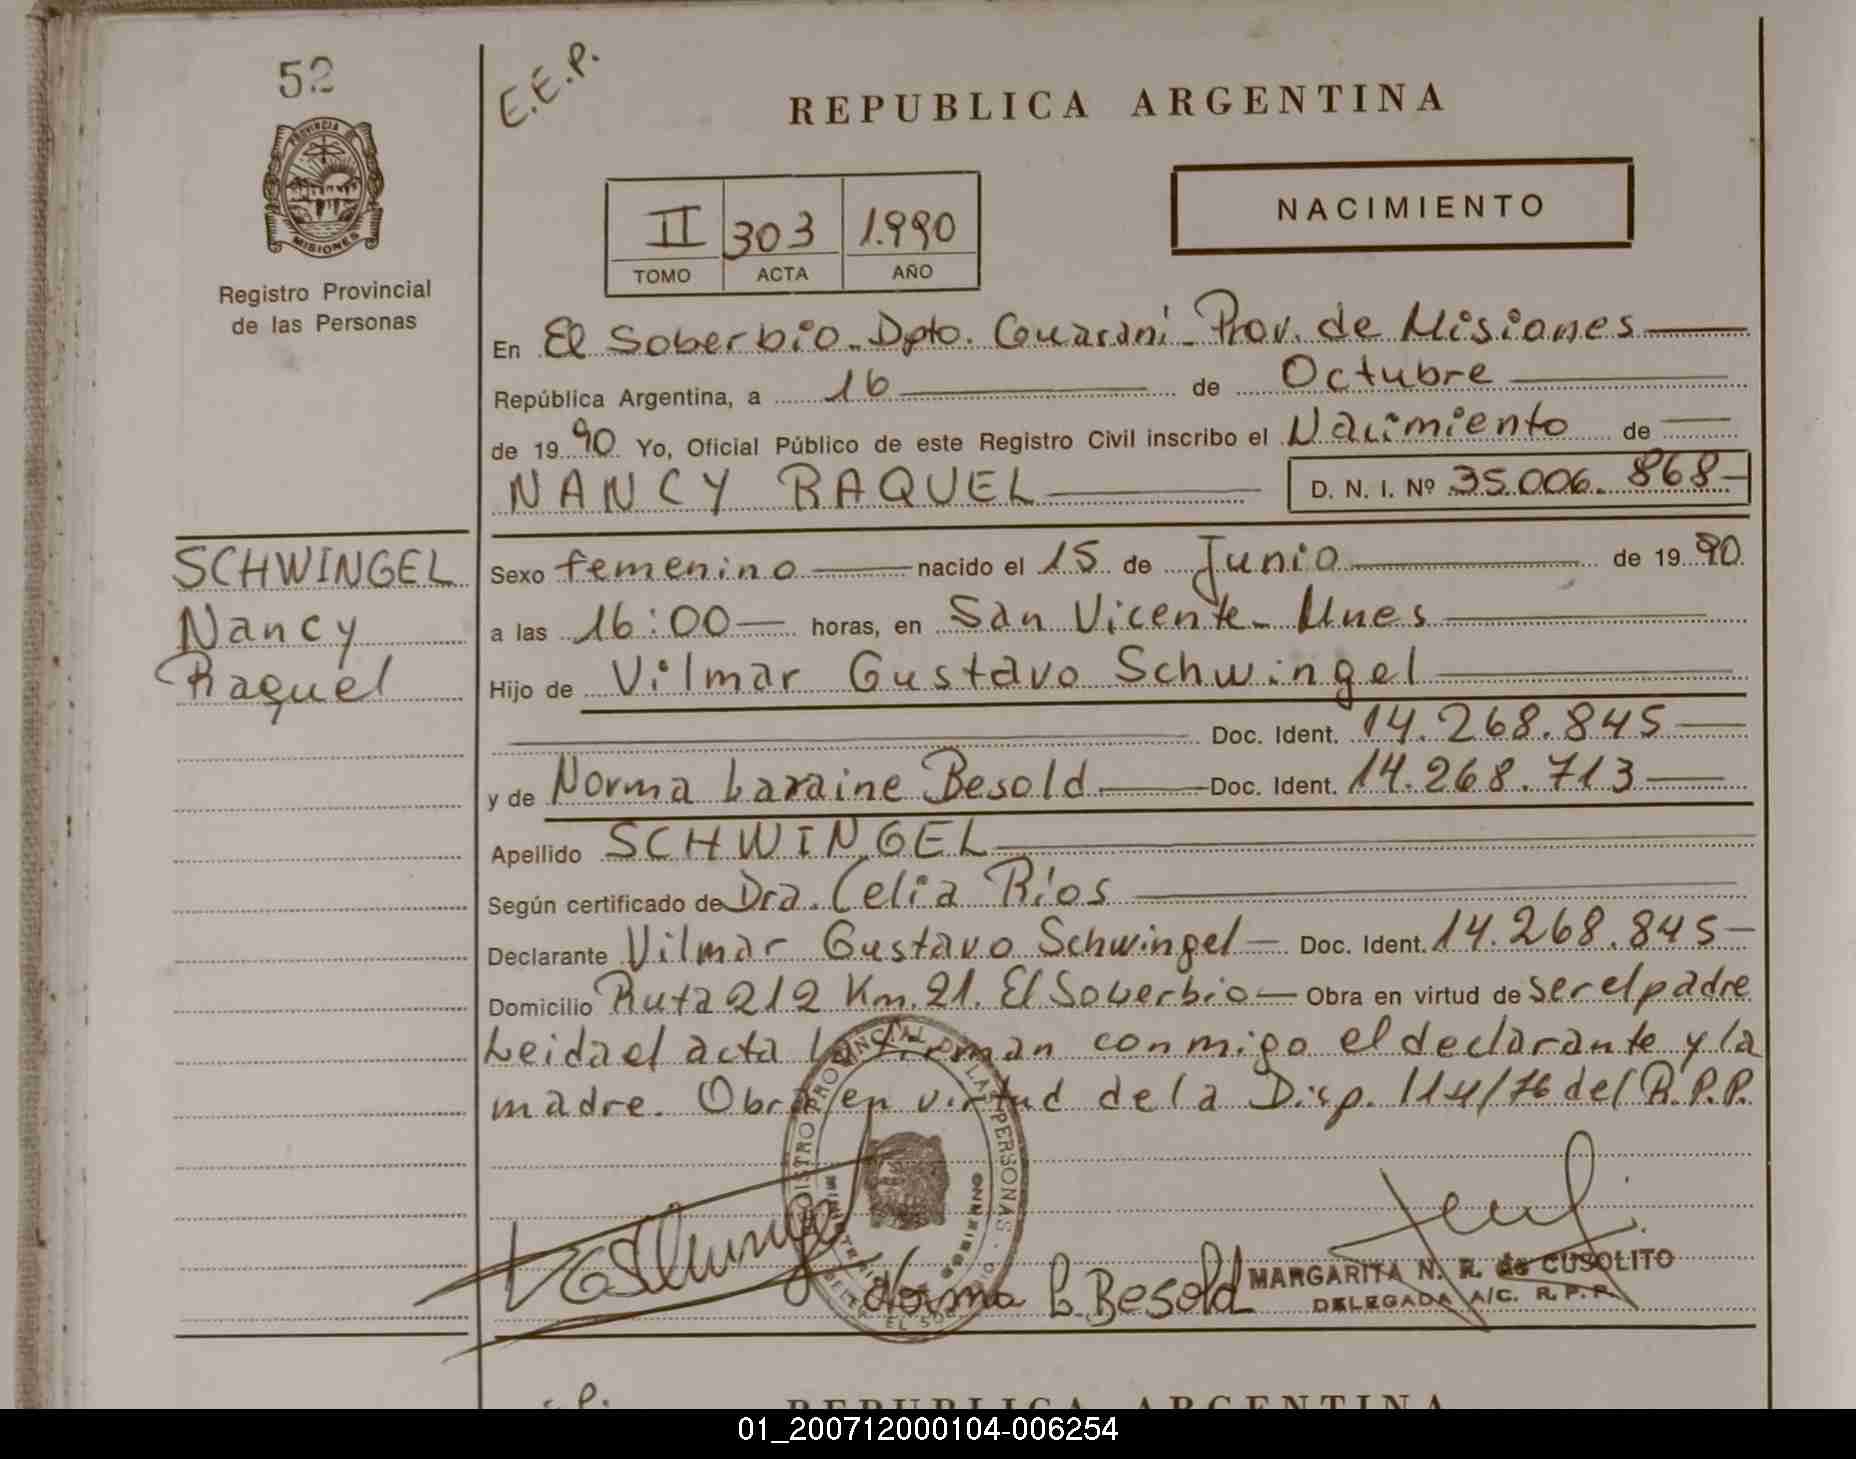 52
E.E.P.
REPUBLICA ARGENTINA
PROVINCIA DE
MISIONES
Registro Provincial
de las Personas
II 303 1.990
TOMO ACTA AÑO
NACIMIENTO
En El Soberbio - Dpto. Guaraní - Prov. de Misiones
República Argentina, a 16 de Octubre
de 19 90 Yo, Oficial Público de este Registro Civil inscribo el Nacimiento de
NANCY RAQUEL D. N. I. Nº 35.006.868-
SCHWINGEL
Nancy
Raquel
Sexo femenino nacido el 15 de Junio de 19 90
a las 16:00 horas, en San Vicente - Mnes
Hijo de Vilmar Gustavo Schwingel
Doc. Ident. 14.268.845
y de Norma Laraine Besold Doc. Ident. 14.268.713
Apellido SCHWINGEL
Según certificado de Dra. Celia Ríos
Declarante Vilmar Gustavo Schwingel Doc. Ident. 14.268.845
Domicilio Ruta 212 Km. 21. El Soberbio Obra en virtud de ser el padre
Leida el acta la firman conmigo el declarante y la
madre. Obra en virtud de la Disp. 114/76 del R.P.P.
PROVINCIAL DE LAS PERSONAS
Norma L. Besold
MARGARITA N. R. de CUSOLITO
DELEGADA A/C. R.P.P.
REPUBLICA ARGENTINA
01_200712000104-006254